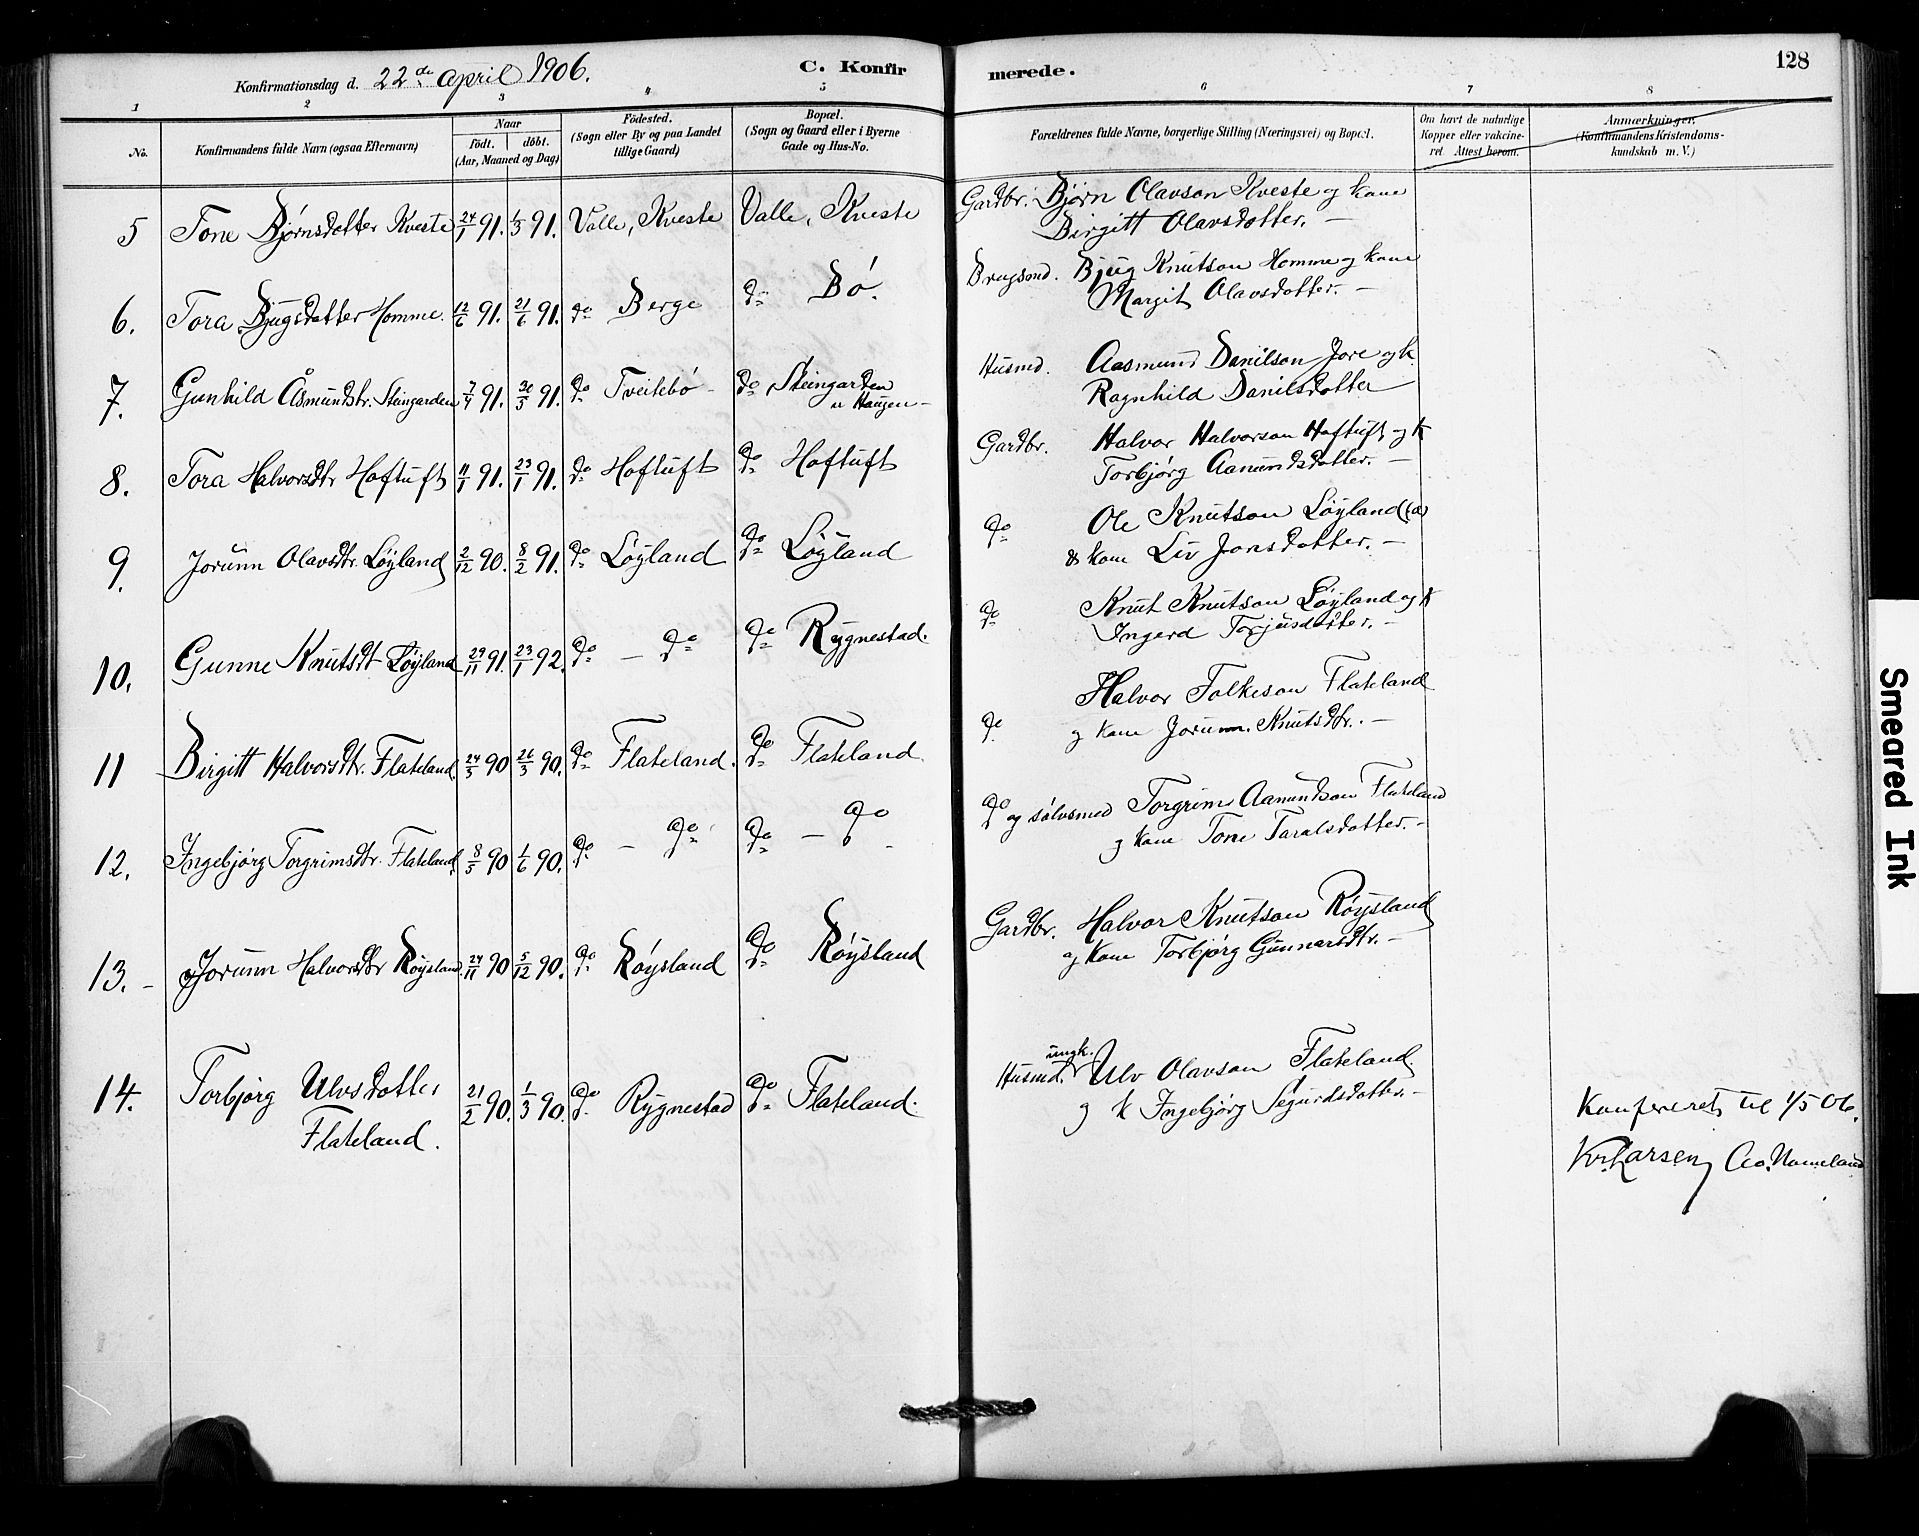 128
Konfirmationsdag d. 22de April 1906.
C. Konfirmerede.
1 2 3 4 5 6 7 8
No.
Konfirmandens fulde Navn (ogsaa Efternavn)
Naar
født. døbt.
(Aar, Maaned og Dag)
Fødested.
(Sogn eller By og paa Landet
tillige Gaard)
Bopæl.
(Sogn og Gaard eller i Byerne
Gade og Hus-No.
Forældrenes fulde Navne, borgerlige Stilling (Næringsvei) og Bopæl.
Om havt de naturlige
Kopper eller vakcine-
ret. Attest herom.
Anmærkninger.
(Konfirmandens Kristendoms-
kundskab m. V.)
5 Tone Bjørnsdotter Kveste 24/1 91. 1/3 91. Valle, Kveste Valle, Kveste Gardbr. Bjørn Olavson Kveste og kone
Birgitt Olavsdotter. —
6. Tora Bjugsdatter Homme. 12/6 91. 21/6 91. do Berge do Bø. Brugsmd. Bjug Knutson Homme og kone
Margit Olavsdotter. —
7. Gunhild Åsmundstr. Steingarden 7/4 91. 30/3 91. do Tveitebø - do Steingarden
u Haugen — Husmd. Aasmund Danilson Jore og k
Ragnhild Danilsdotter
8. Tora Halvorsdtr Hoftuft 11/1 91. 23/1 91. do Hoftuft do Hoftuft Gardbr. Halvor Halvorson Hoftuft og k
Torbjørg Aanundsdotter. —
9. Jorunn Olavsdtr. Løyland 2/12 90. 8/2 91. do Løyland do Løyland do Ole Knutson Løyland
& kone Liv Jonsdotter. —
10. Gunne Knutsdt Løyland 29/11 91. 23/1 92. do — do do Rygnestad. do Knut Knutson Løyland og k
Ingerd Torjusdotter. —
11 Birgitt Halvorsdtr. Flateland 24/3 90 26/3 90. do Flateland. do Flateland. do Halvor Folkeson Flateland
og kone Jorunn Knutsdtr. —
12. Ingebjørg Torgrimsdtr. Flateland. 8/5 90 1/6 90. do — do do — do do og sølvsmed Torgrim Aanundson Flateland
og kone Tone Taralsdotter. —
13. — Jorunn Halvorsdtr Røysland 24/11 90 5/12 90. do Røysland do Røysland Gardbr. Halvor Knutson Røysland
og kone Torbjørg Gunnarsdtr. —
14. Torbjørg Ulvsdotter
Flateland. 21/2 90. 1/3 90. do Rygnestad do Flateland. Husmd. ungk. Ulv Olavson Flateland.
og k Ingebjørg Segurdsdotter. —
Konfereret til 1/5 06.
Kr. Larsen
Smeared Ink